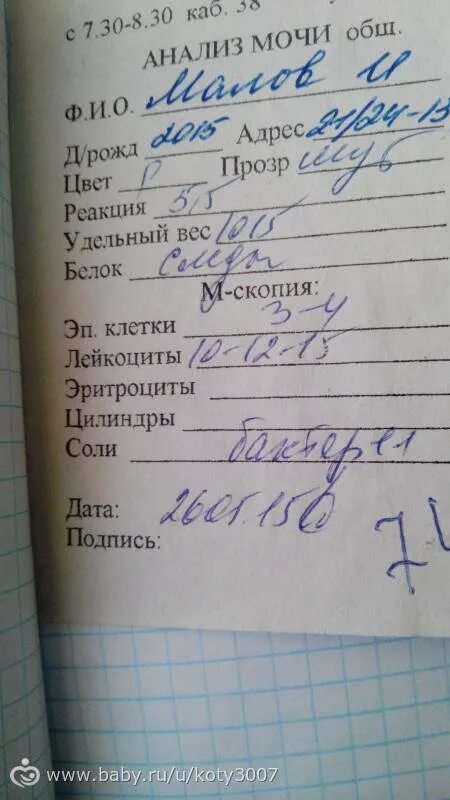 с 7.30-8.30 каб. 38
АНАЛИЗ МОЧИ общ.
Ф.И.О. Малов И
Д/рожд 2015 Адрес 21/24-15
Цвет Прозр мут
Реакция 5,5
Удельный вес 1015
Белок следы
М-скопия:
Эп. клетки 3-4
Лейкоциты 10-12-15
Эритроциты
Цилиндры
Соли бактерии
Дата: 26.05.15
Подпись:
www.baby.ru/u/koty3007